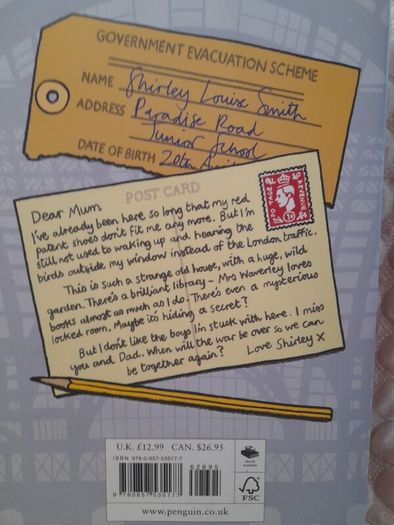 GOVERNMENT EVACUATION SCHEME
NAME Shirley Louise Smith
ADDRESS Paradise Road
Junior School
DATE OF BIRTH 20th
POST CARD
POSTAGE REVENUE
1D
Dear Mum,
I've already been here so long that my red
patent shoes don't fit me any more. But I'm
still not used to waking up and hearing the
birds outside my window instead of the London traffic.
This is such a strange old house, with a huge, wild
garden. There's a brilliant library – Mrs Waverley loves
books almost as much as I do. There's even a mysterious
locked room. Maybe it's hiding a secret?
But I don't like the boys I'm stuck with here. I miss
you and Dad. When will the war be over so we can
be together again?
Love Shirley X
U.K. £12.99 CAN. $26.95
ISBN 978-0-857-53517-7
62695
9 780857 535177
FSC
www.penguin.co.uk